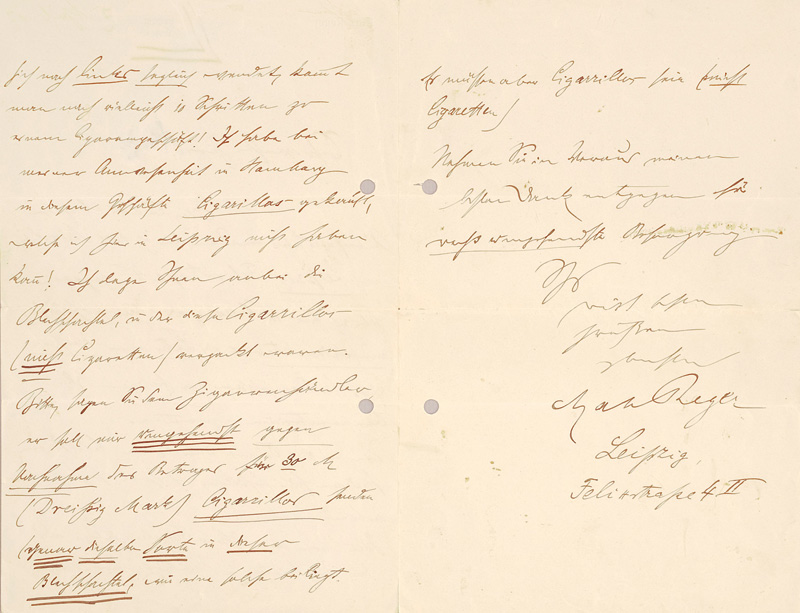 sich nach links sogleich wendet, kommt
man nach vielleicht 10 Schritten zu
einem Cigarrengeschäft! Ich habe bei
meiner Anwesenheit in Hamburg
in diesem Geschäfte Cigarillos gekauft,
welche ich hier in Leipzig nicht haben
kann! Ich lege Ihnen anbei die
Blechschachtel, in der diese Cigarrillos
(nicht Cigaretten) verpackt waren.
Bitte, sagen Sie dem Zigarrenhändler
er soll mir umgehendst gegen
Nachnahme des Betrages für 30 M
(Dreißig Mark) Cigarrillos senden
(genau dieselbe Sorte in dieser
Blechschachtel, wie eine solche beiliegt.
Es müssen aber Cigarrillos sein (nicht
Cigaretten)
Nehmen Sie im Voraus meinen
besten Dank entgegen für
umgehendste Besorgung
Ihr
mit besten
Grüßen
Max Reger
Leipzig,
Felixstraße 4 II